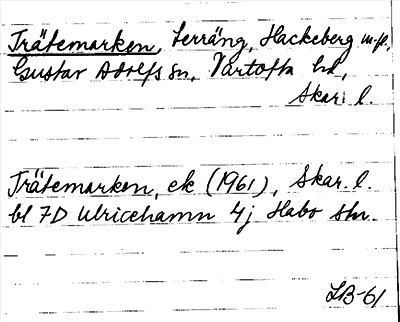 Trätemarken, terräng, Hackeberg m.fl.,
Gustav Adolfs sn, Vartofta hd,
Skar. l.
Trätemarken, ek (1961), Skar. l.
bl 7D Ulricehamn 4j Habo stn.
LB-61